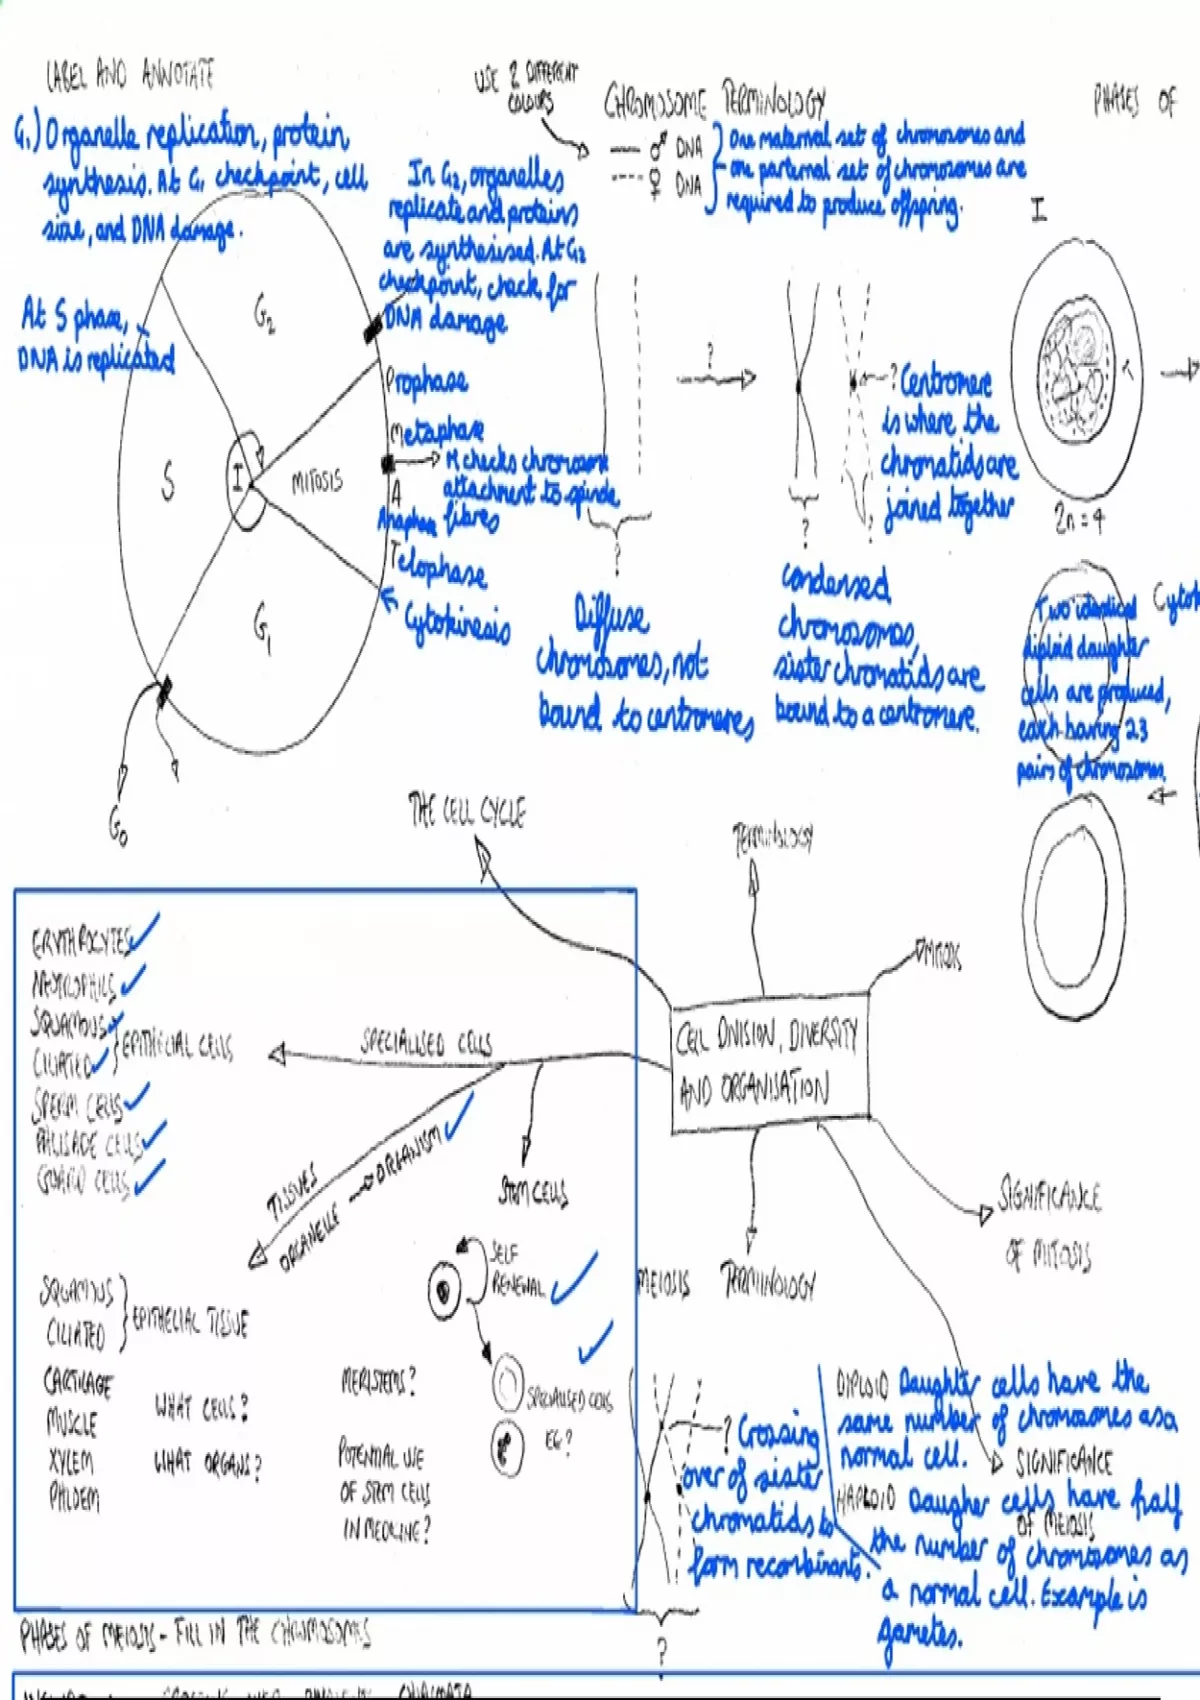 LABEL AND ANNOTATE
G1) Organelle replication, protein
synthesis. At G1 checkpoint, cell
size, and DNA damage.
At S phase,
DNA is replicated
In G2, organelles
replicate and proteins
are synthesised. At G2
checkpoint, check for
DNA damage
G2
S
I
MITOSIS
G1
G0
Prophase
Metaphase
M checks chromosome
attachment to spindle
fibres
A
Anaphase
Telophase
Cytokinesis
USE 2 DIFFERENT
COLOURS
CHROMOSOME TERMINOLOGY
♂ DNA
♀ DNA
One maternal set of chromosomes and
one parternal set of chromosomes are
required to produce offspring.
?
? Centromere
is where the
chromatids are
joined together
?
?
?
Diffuse
chromosomes, not
bound to centromeres
condensed
chromosomes,
sister chromatids are
bound to a centromere.
PHASES OF
I
2n = 4
Two identical
diploid daughter
cells are produced,
each having 23
pairs of chromosomes.
Cytok
THE CELL CYCLE
TERMINOLOGY
MITOSIS
CELL DIVISION, DIVERSITY
AND ORGANISATION
SIGNIFICANCE
OF MITOSIS
TERMINOLOGY
MEIOSIS
SIGNIFICANCE
OF MEIOSIS
ERYTHROCYTES
NEUTROPHILS
SQUAMOUS
CILIATED
EPITHELIAL CELLS
SPERM CELLS
PALISADE CELLS
GUARD CELLS
SPECIALISED CELLS
TISSUES
ORGANELLE → ORGANISM
STEM CELLS
SELF
RENEWAL
SPECIALISED CELLS
EG?
SQUAMOUS
CILIATED
EPITHELIAL TISSUE
CARTILAGE
MUSCLE
XYLEM
PHLOEM
WHAT CELLS?
WHAT ORGANS?
MERISTEMS?
POTENTIAL USE
OF STEM CELLS
IN MEDICINE?
? Crossing
over of sister
chromatids to
form recombinants.
?
DIPLOID Daughter cells have the
same number of chromosomes as a
normal cell.
HAPLOID Daugher cells have half
the number of chromosomes as
a normal cell. Example is
gametes.
PHASES OF MEIOSIS - FILL IN THE CHROMOSOMES